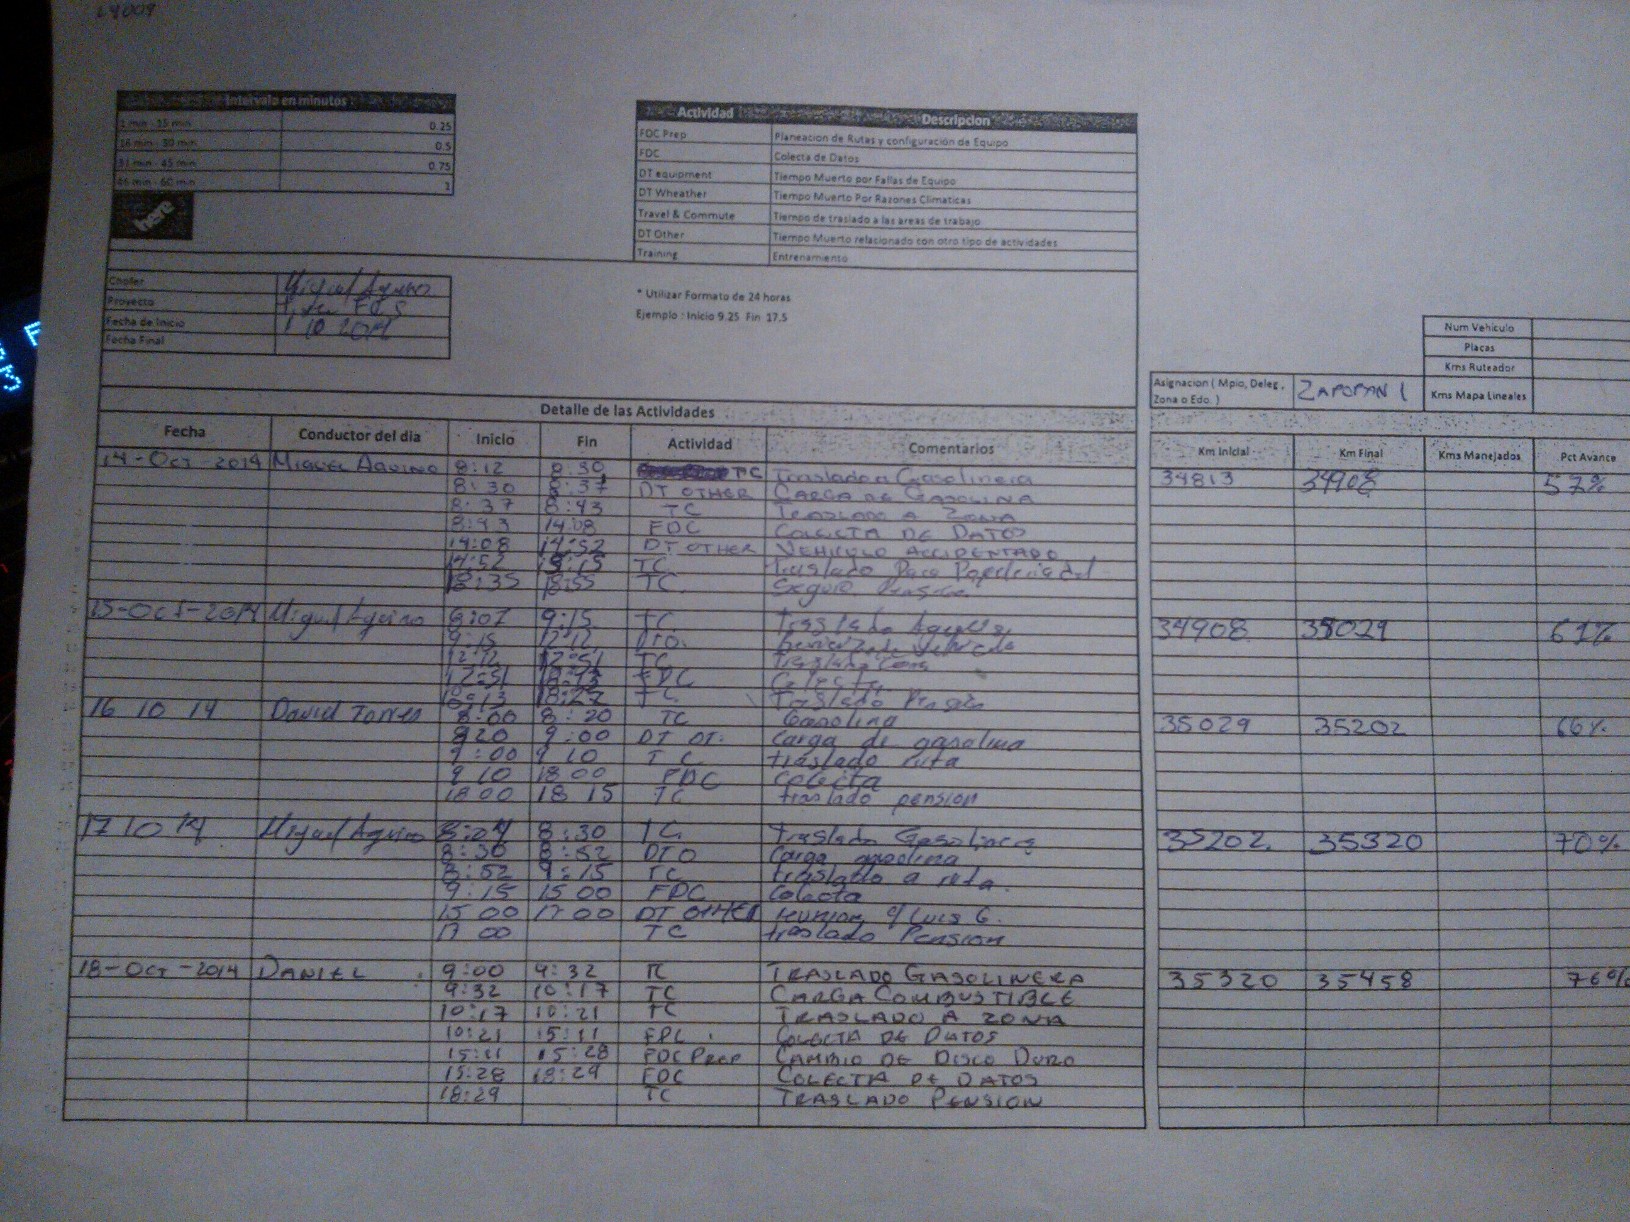 Intervalo en minutos
1 min - 15 min 0.25
16 min - 30 min 0.5
31 min - 45 min 0.75
46 min - 60 min 1
here
Actividad Descripcion
FDC Prep Planeacion de Rutas y configuración de Equipo
FDC Colecta de Datos
DT equipment Tiempo Muerto por Fallas de Equipo
DT Wheather Tiempo Muerto Por Razones Climaticas
Travel & Commute Tiempo de traslado a las areas de trabajo
DT Other Tiempo Muerto relacionado con otro tipo de actividades
Training Entrenamiento
Chofer Miguel Aquino
Proyecto
Fecha de Inicio 1 10 2014
Fecha Final
* Utilizar Formato de 24 horas
Ejemplo : Inicio 9.25 Fin 17.5
Num Vehiculo
Placas
Kms Ruteador
Kms Mapa Lineales
Asignacion ( Mpio, Deleg, Zona o Edo. ) ZAPOPAN 1
Detalle de las Actividades
Fecha Conductor del dia Inicio Fin Actividad Comentarios Km Inicial Km Final Kms Manejados Pct Avance
14-Oct-2014 Miguel Aquino 8:12 8:30 TC Traslado a Gasolinera 34813 34908 57%
8:30 8:37 DT OTHER CARGA DE GASOLINA
8:37 8:43 TC TRASLADO A ZONA
8:43 14:08 FDC COLECTA DE DATOS
14:08 14:52 DT OTHER VEHICULO ACCIDENTADO
14:52 TC Traslado Para
18:35 18:55 TC
15-Oct-2014 Miguel Aquino 8:07 9:15 TC Traslado 34908 35029 61%
9:15 12:12 DTO.
12:12 12:51 TC Traslado Zona
12:51 FDC Colecta
18:13 18:27 TC Traslado
16 10 14 David Torres 8:00 8:20 TC Gasolina 35029 35202 66%
8 20 9:00 DT OT. Carga de gasolina
9:00 9 10 TC traslado ruta
9 10 18 00 FDC Colecta
18 00 18 15 TC traslado pension
17 10 14 Miguel Aquino 8:04 8:30 TC Traslado Gasolinera 35202 35320 70%
8:30 8:52 DTO Carga gasolina
8:52 9:15 TC traslado a ruta.
9:15 15 00 FDC Colecta
15 00 17 00 DT OTHER reunion c/ Luis G.
17 00 TC traslado Pension
18-Oct-2014 DANIEL 9:00 9:32 TC TRASLADO GASOLINERA 35320 35458 76%
9:32 10:17 TC CARGA COMBUSTIBLE
10:17 10:21 TC TRASLADO A ZONA
10:21 15:11 FDC COLECTA DE DATOS
15:11 15:28 FDC Prep CAMBIO DE DISCO DURO
15:28 18:29 FDC COLECTA DE DATOS
18:29 TC TRASLADO PENSION